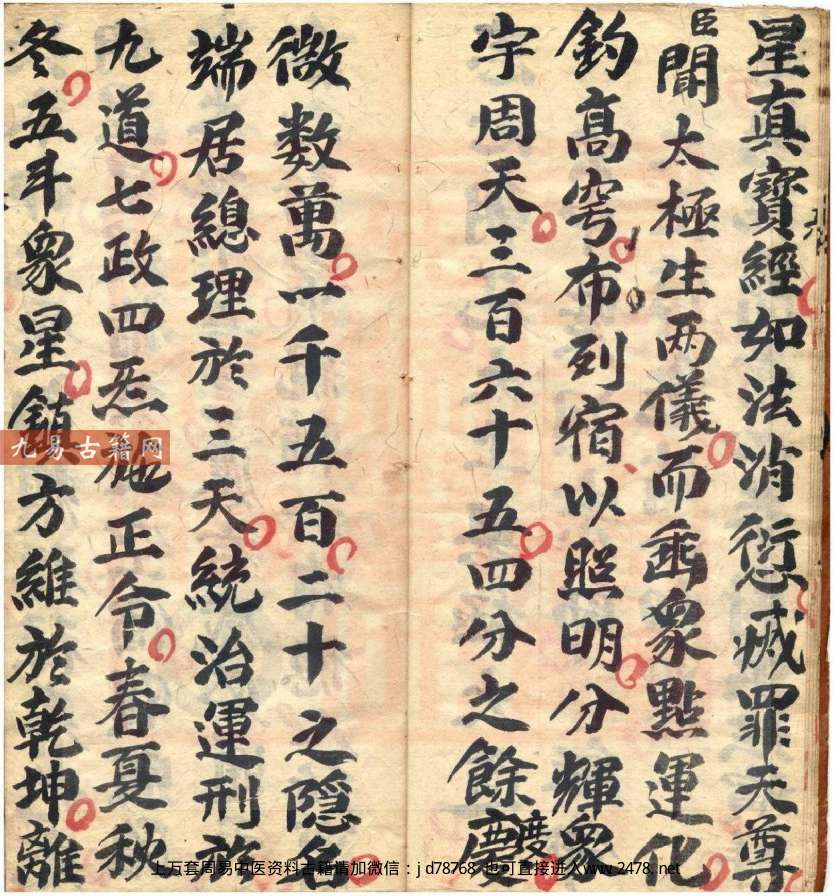 星真寶經如法消愆滅罪天尊
臣聞太極生两儀而垂衆點運化
釣高穹布列宿以照明分輝衆
宇周天三百六十五四分之餘慶
度
微数萬一千五百二十之隠名
端居總理於三天統治運刑於
九道七政四炁施正令春夏秋
冬五斗衆星鎮方維於乾坤離
九易古籍网
上万套周易中医资料古籍请加微信：jd78768 也可直接进入www.2478.net